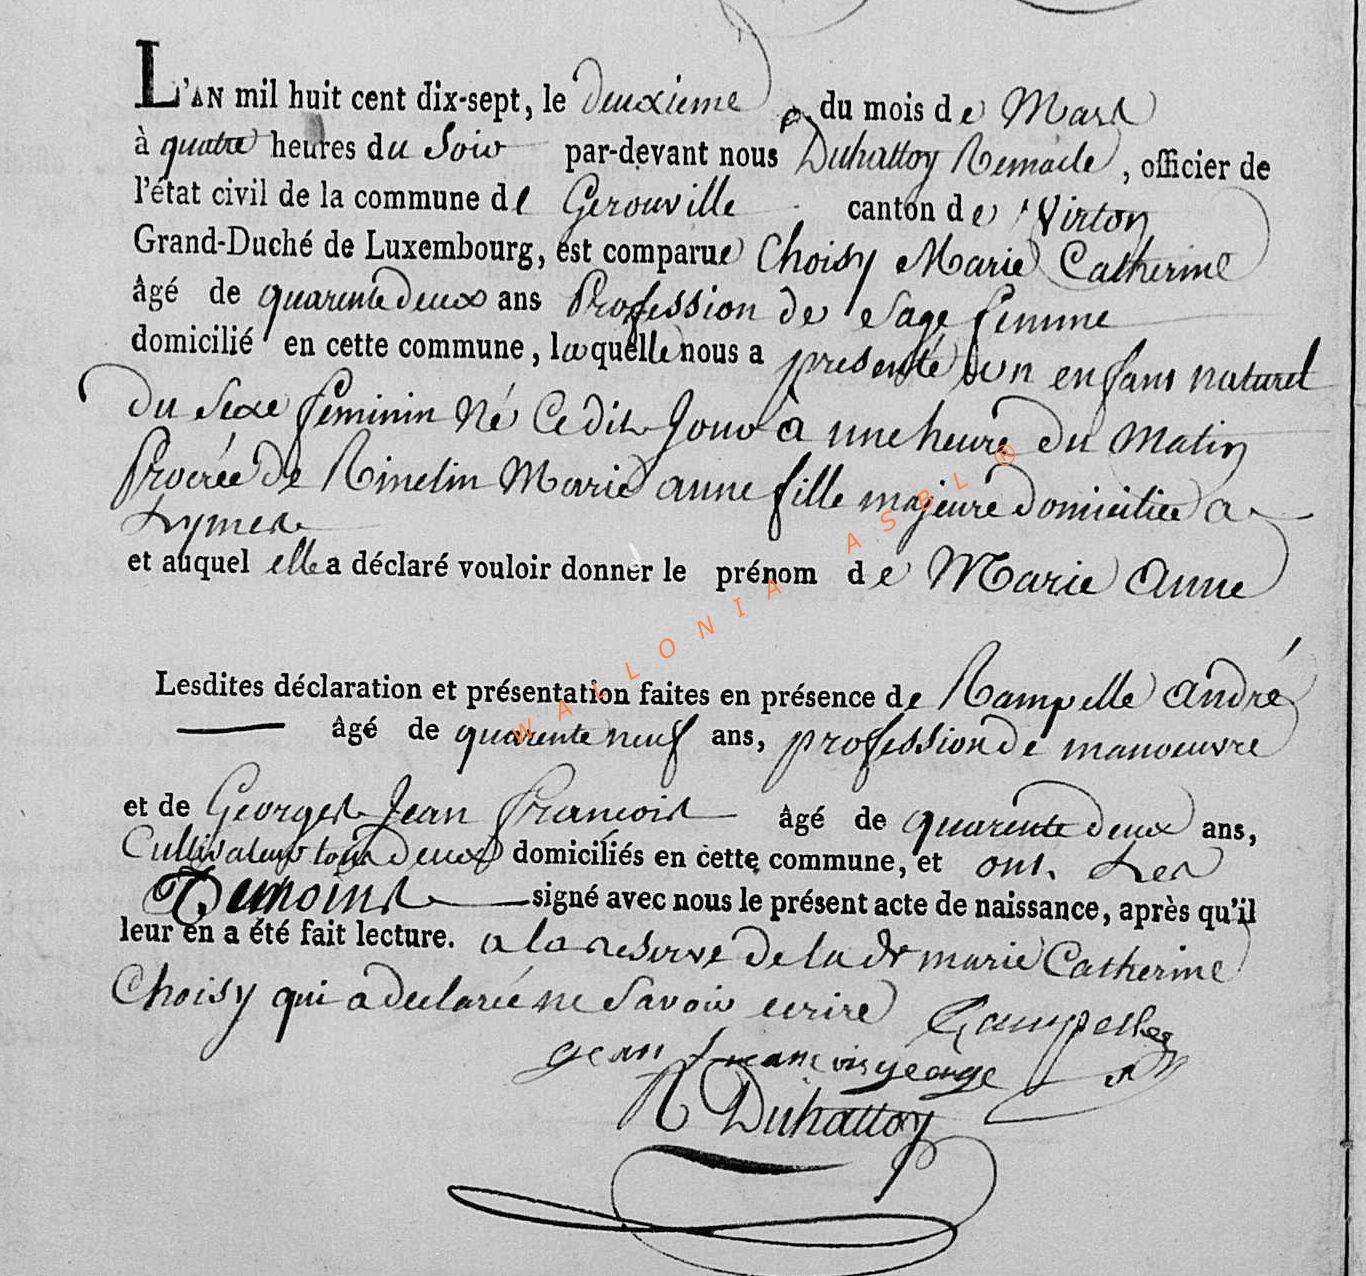 L'AN mil huit cent dix-sept, le deuxieme du mois de Mars
à quatre heures du Soir par-devant nous Duhattoy Remacle, officier de
l'état civil de la commune de Gerouville canton de Virton
Grand-Duché de Luxembourg, est comparue Choisy Marie Catherine
âgé de quarente deux ans Profession de Sage femme
domicilié en cette commune, laquelle nous a presenté un enfant naturel
du Sexe feminin Né Cedit Jour à une heure du Matin
Procréé de Rinclin Marie anne fille majeure domiciliée a
Limes
et auquel elle a déclaré vouloir donner le prénom de Marie Anne
Lesdites déclaration et présentation faites en présence de Rampelle André
âgé de quarente neuf ans, profession de manoeuvre
et de Georges Jean Francois âgé de quarente deux ans,
Cultivateur tous deux domiciliés en cette commune, et ont les
Temoins signé avec nous le présent acte de naissance, après qu'il
leur en a été fait lecture. a la reserve de la dte marie Catherine
Choisy qui a declarée ne Savoir ecrire Rampelle
jean francois george
R Duhattoy
WALLONIA ASBL ®